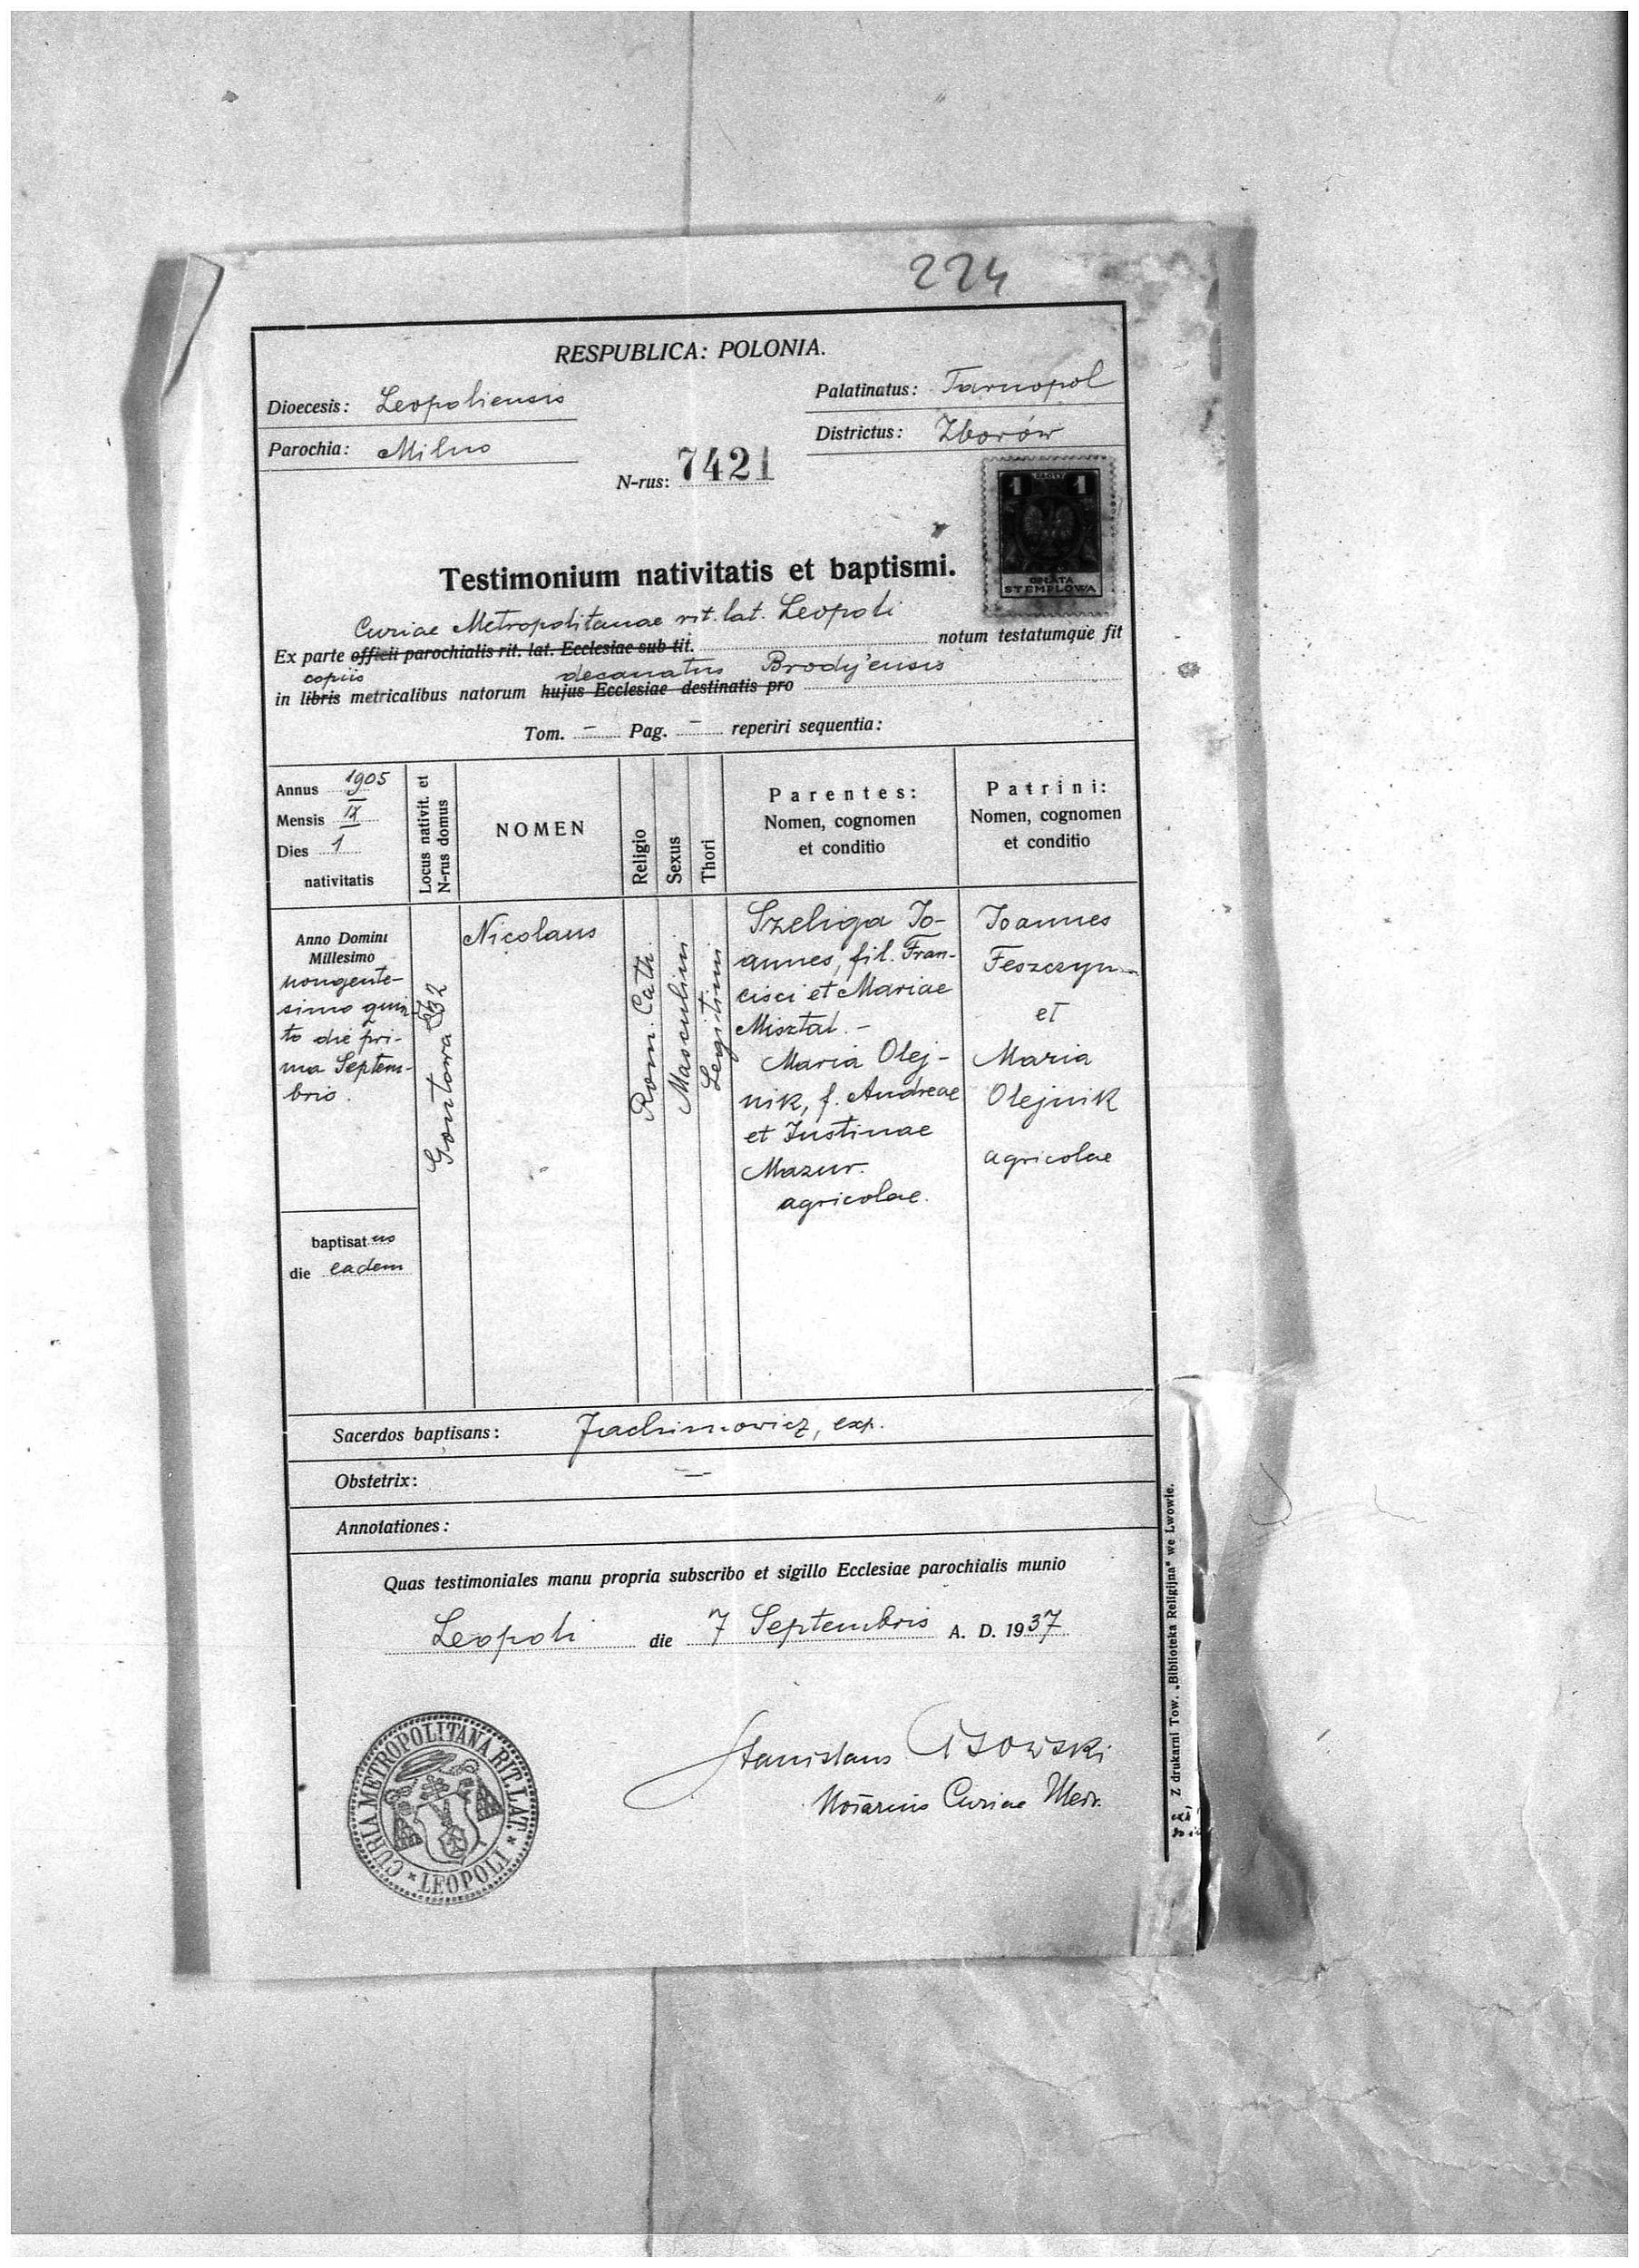 224
RESPUBLICA: POLONIA.
Dioecesis: Leopoliensis
Palatinatus: Tarnopol
Parochia: Milno
Districtus: Zborów
N-rus: 7421
1 ZŁOTY 1
OPŁATA
STEMPLOWA
Testimonium nativitatis et baptismi.
Curiae Metropolitanae rit. lat. Leopoli
Ex parte officii parochialis rit. lat. Ecclesiae sub tit. notum testatumque fit
copiis decanatus Brodyensis
in libris metricalibus natorum hujus Ecclesiae destinatis pro
Tom. – Pag. – reperiri sequentia:
Annus 1905
Mensis IX
Dies 1
nativitatis
Locus nativit. et
N-rus domus
NOMEN
Religio
Sexus
Thori
Parentes:
Nomen, cognomen
et conditio
Patrini:
Nomen, cognomen
et conditio
Anno Domini
Millesimo
nongente-
simo quin
to die pri-
ma Septem-
bris.
baptisatus
die eadem
Gontowa
Nicolaus
Rom. Cath.
Masculini
Legitimi
Szeliga Jo-
annes, fil. Fran-
cisci et Mariae
Misztal. –
Maria Olej-
nik, f. Andreae
et Justinae
Mazur.
agricolae.
Joannes
Feszczyn
et
Maria
Olejnik
agricolae
Sacerdos baptisans: Jachimowicz, exp.
Obstetrix: —
Annotationes:
Quas testimoniales manu propria subscribo et sigillo Ecclesiae parochialis munio
Leopoli die 7 Septembris A. D. 1937
Stanislaus
Notarius Curiae Metr.
CURIA METROPOLITANA RIT. LAT.
* LEOPOLI *
Z drukarni Tow. „Biblioteka Religijna" we Lwowie.